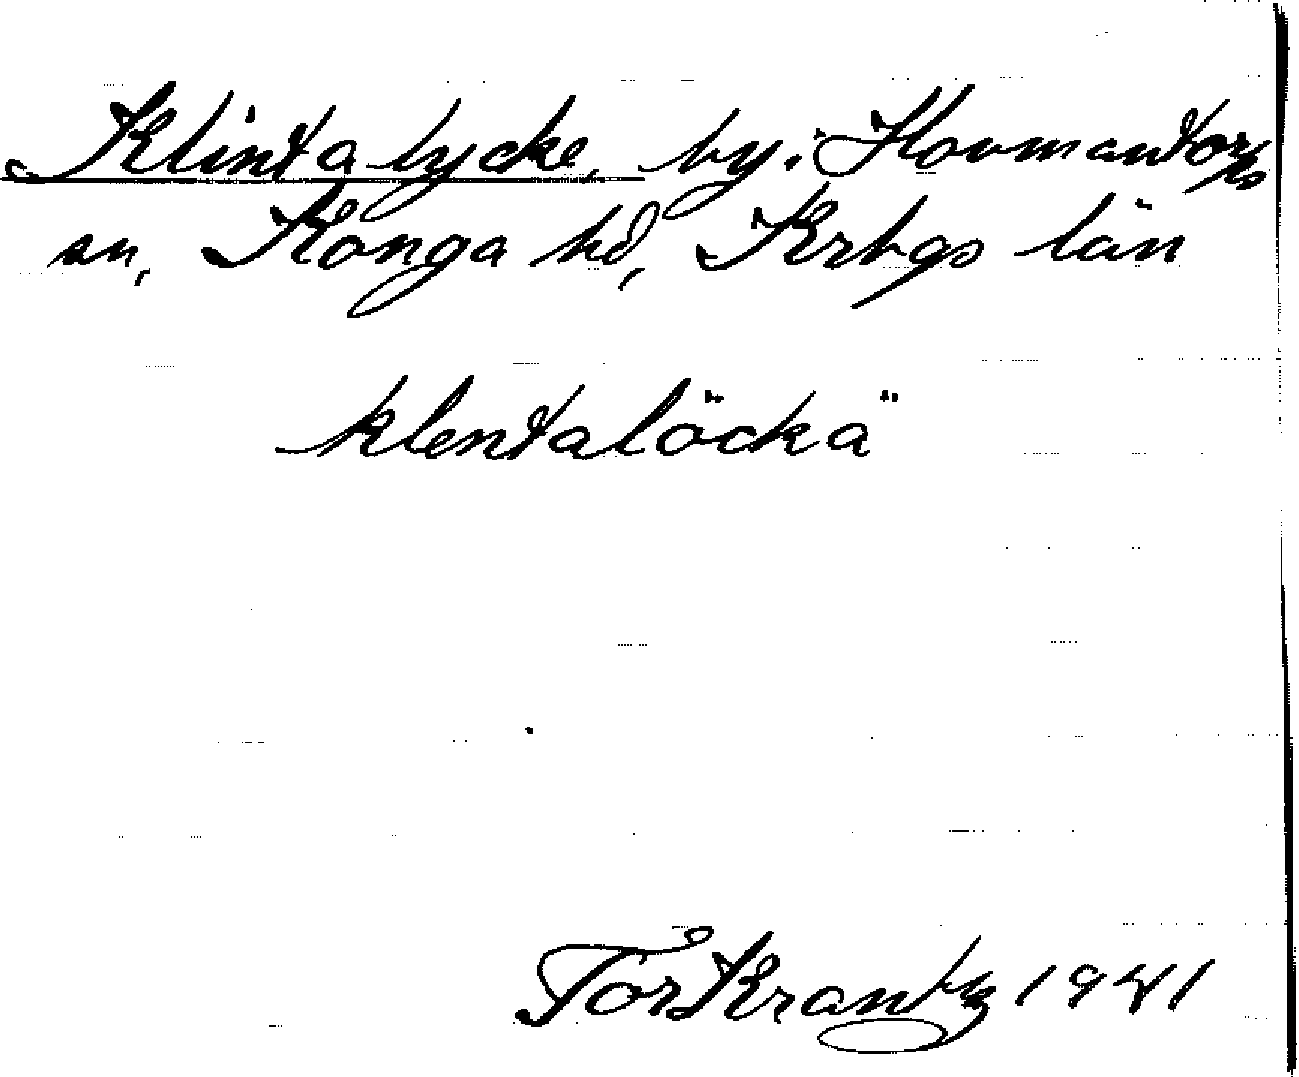 Klintalycke, by. Hovmantorps
sn, Konga hd, Krbgs län
klentalöckä
Tor Krantz 1941